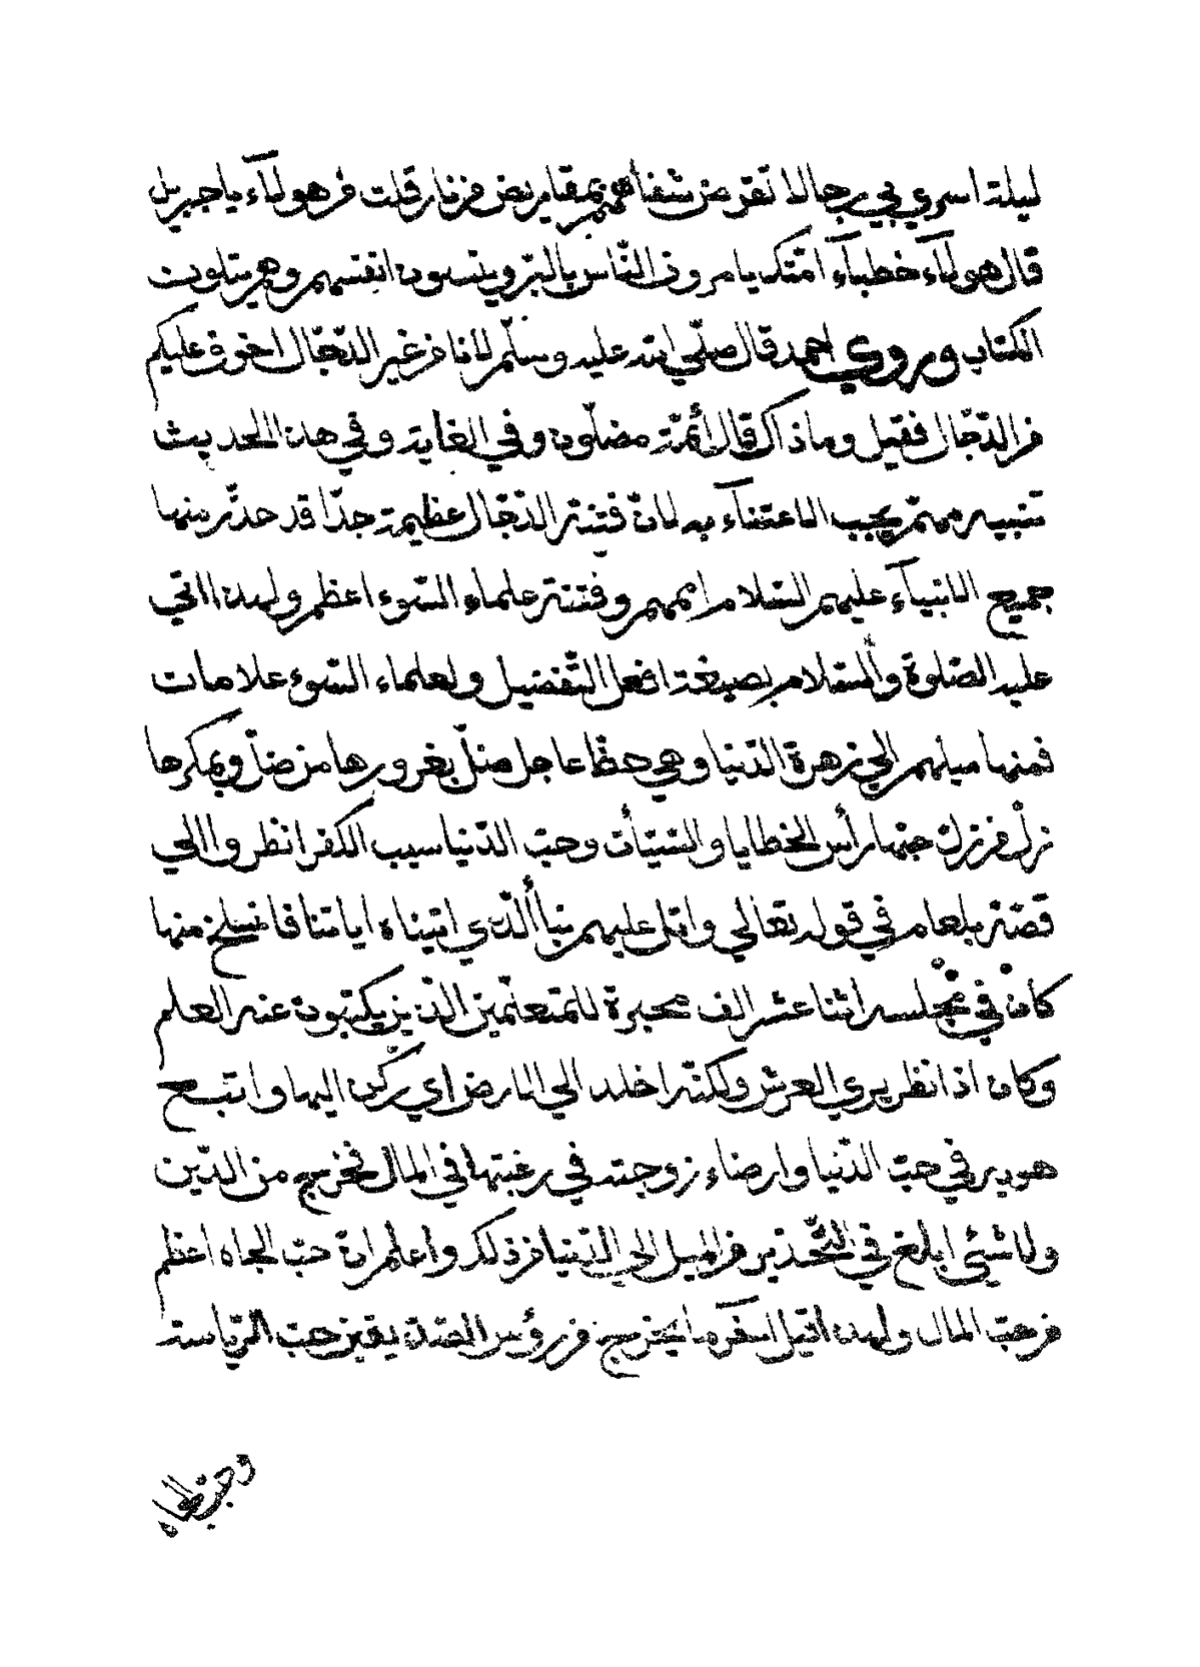 ليلة اسري بي رجالا تقرض شفاههم بمقاريض من نار قلت من هولآء يا جبريل
قال هولآء خطبآء امتك يامرون النّاس بالبرّ وينسون انفسهم وهم يتلون
الكتاب وروي احمد قال صلّي الله عليه وسلّم لانا من غير الدّجّال اخوف عليكم
من الدّجّال فقيل وما ذاك قال أئمّة مضلّون وفي الغاية وفي هذا الحديث
تنبيه مهمّ يجب الاعتنآء به لانّ فتنة الدّجّال عظيمة جدّا قد حذّر منها
جميع الانبيآء عليهم السّلام اممهم وفتنة علماء السّوء اعظم ولهذا اتي
عليه الصّلوة والسّلام بصيغة افعل التّفضيل ولعلماء السّوء علامات
فمنها ميلهم الي زهرة الدّنيا وهي حظّ عاجل ضلّ بغرورها من ضلّ وبمكرها
زلّ من زلّ حبّها رأس الخطايا والسّيّأت وحبّ الدّنيا سبب الكفر انظروا الي
قصّة بلعام في قوله تعالي واتل عليهم نبأ الّذي اتيناه اياتنا فانسلخ منها
كان في مجلسه اثنا عشر الف محبرة للمتعلّمين الّذين يكتبون عنه العلم
وكان اذا نظر يري العرش ولكنّه اخلد الي الارض اي ركن اليها واتبع
هويه في حبّ الدّنيا وارضاء زوجته في رغبتها في المال فخرج من الدّين
ولا شيئ ابلغ في التّحذير من الميل الي الدّنيا من ذلك واعلم ان حبّ الجاه اعظم
من حبّ المال ولهذا قيل اخر ما يخرج من رؤس الصّدّيقين حبّ الرّياسة
وحبّ الجاه